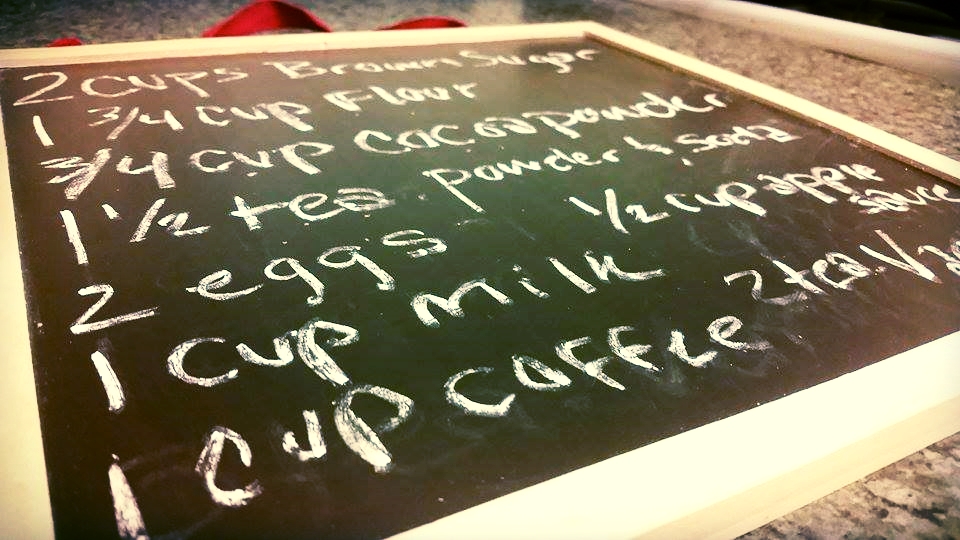 2 cups Brown Sugar
1 3/4 cup Flour
3/4 cup cocoa powder
1 1/2 tea powder & soda
2 eggs 1/2 cup apple sauce
1 cup milk
1 cup coffee 2 tea